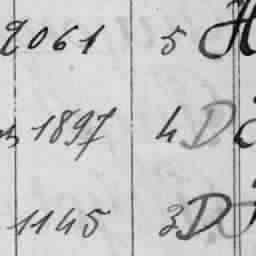 2061 5 H
1897 4 D.
1145 3 D.